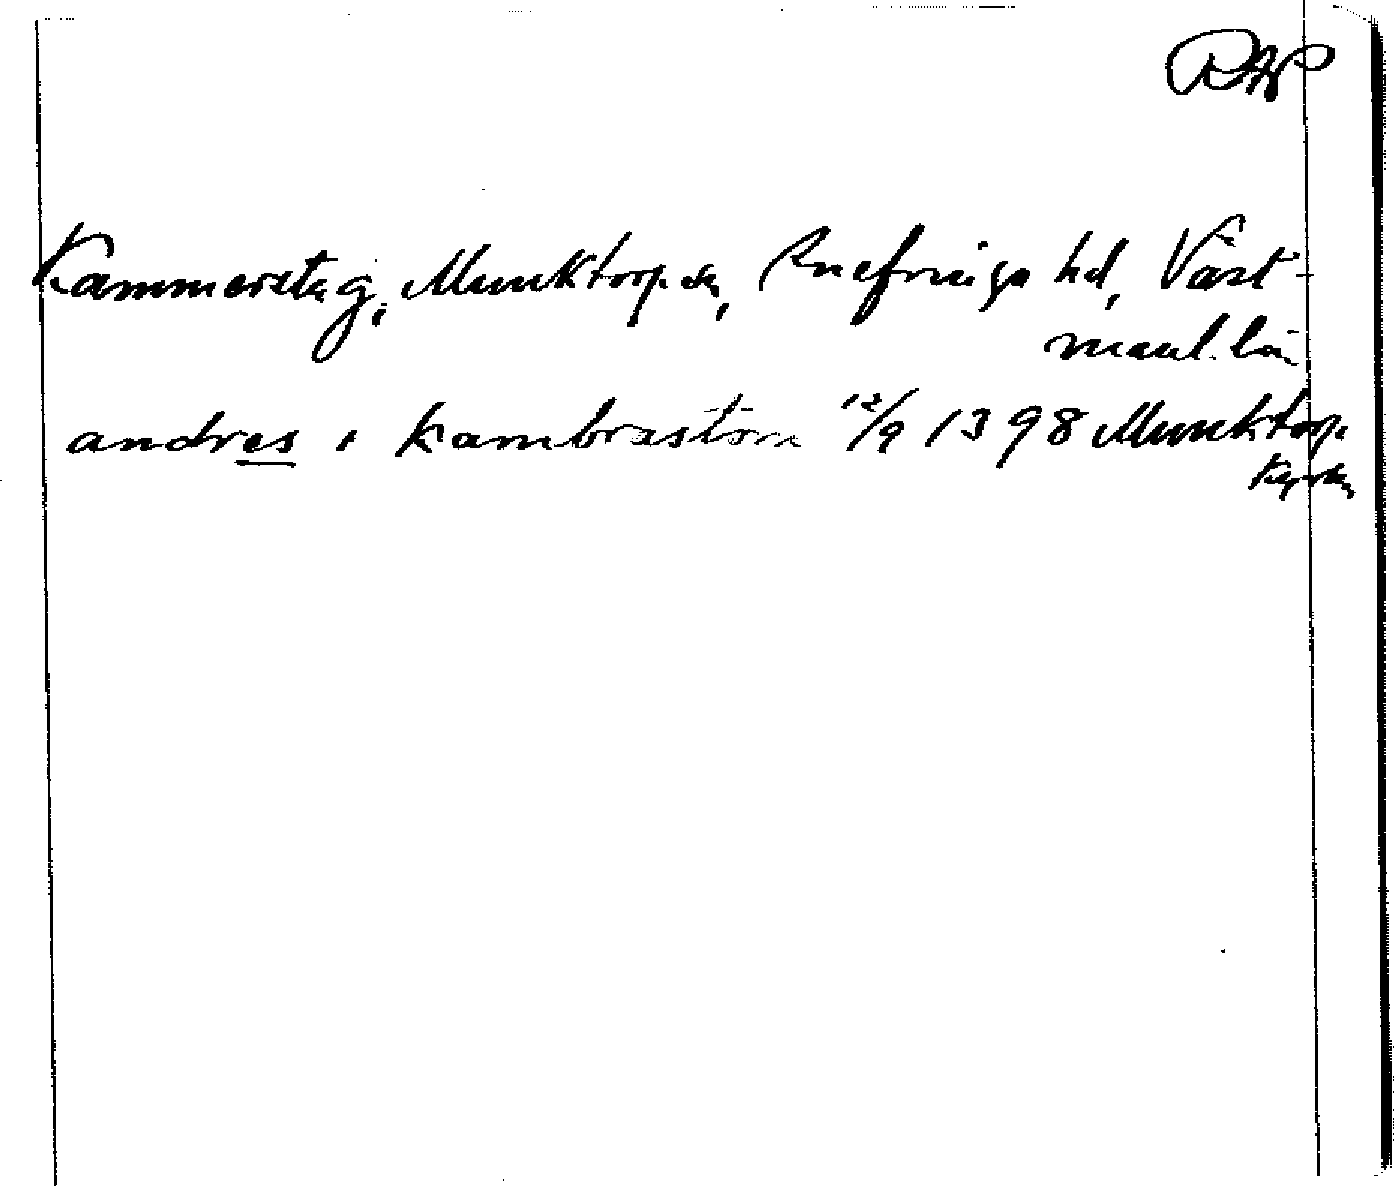 RAP
Kammerstag, Munktorps sn, Snefringe hd, Väst-
manl. län
andres i kambrastom 12/9 1398 Munktorp
kyrka